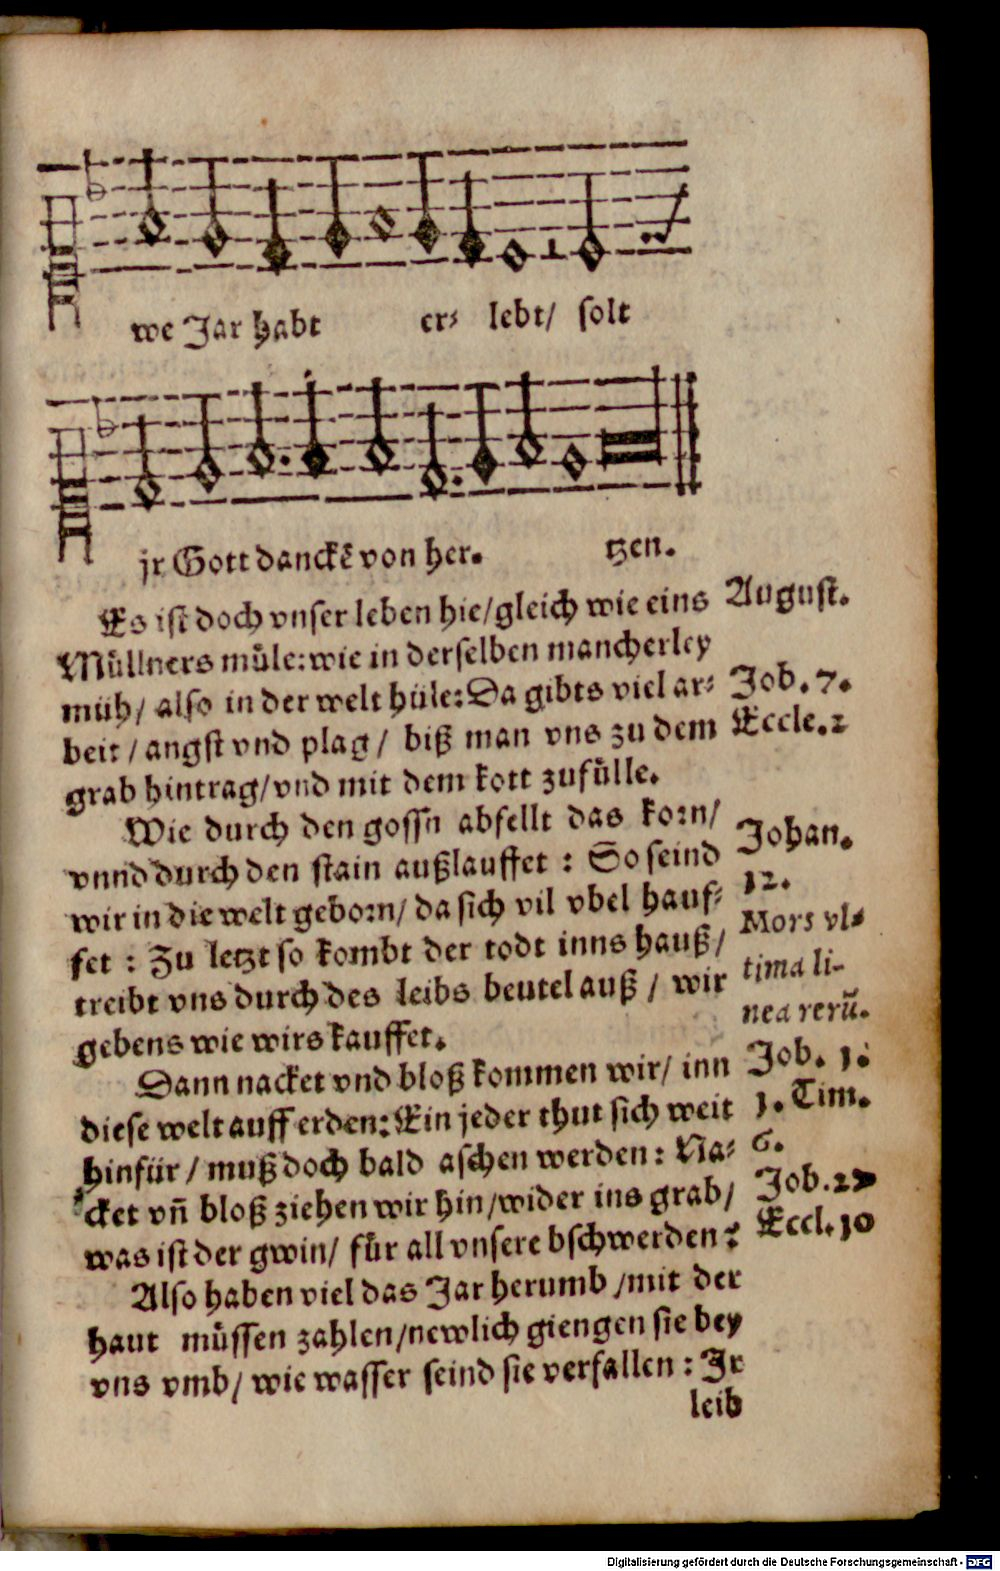 we Jar habt er⸗ lebt/ solt
jr Gott danckē von her. tzen.
Es ist doch vnser leben hie/gleich wie eins
August.
Müllners müle: wie in derselben mancherley
müh/ also in der welt hüle: Da gibts viel ar⸗
Job. 7.
beit / angst vnd plag / biß man vns zu dem
Eccle. 2
grab hintrag/vnd mit dem kott zufülle.
Wie durch den gossn abfellt das korn/
Johan.
vnnd durch den stain außlauffet : So seind
12.
wir in die welt geborn/ da sich vil vbel hauf⸗
Mors vl⸗
fet : Zu letzt so kombt der todt inns hauß/
tima li-
treibt vns durch des leibs beutel auß / wir
nea rerū.
gebens wie wirs kauffet.
Dann nacket vnd bloß kommen wir/ inn
Job. 1.
diese welt auff erden: Ein jeder thut sich weit
1. Tim.
hinfür / muß doch bald aschen werden: Na⸗
6.
cket vñ bloß ziehen wir hin/wider ins grab/
Job. 27
was ist der gwin/ für all vnsere bschwerden?
Eccl. 10
Also haben viel das Jar herumb /mit der
haut müssen zahlen/newlich giengen sie bey
vns vmb/ wie wasser seind sie verfallen : Jr
leib
Digitalisierung gefördert durch die Deutsche Forschungsgemeinschaft - DFG